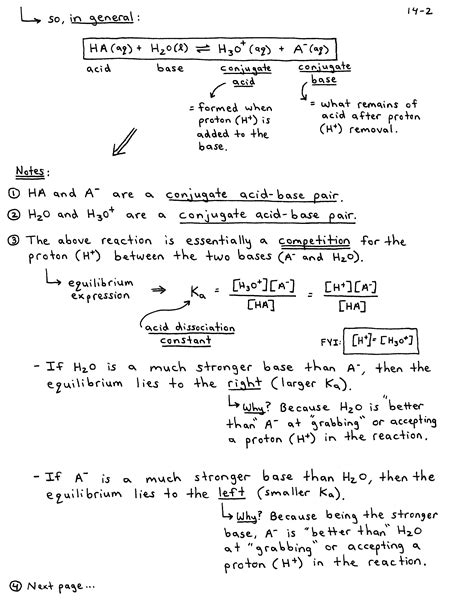 14-2
↳ so, in general:
HA(aq) + H₂O(l) ⇌ H₃O⁺(aq) + A⁻(aq)
acid base conjugate acid conjugate base
= formed when
proton (H⁺) is
added to the
base.
= what remains of
acid after proton
(H⁺) removal.
Notes:
① HA and A⁻ are a conjugate acid-base pair.
② H₂O and H₃O⁺ are a conjugate acid-base pair.
③ The above reaction is essentially a competition for the
proton (H⁺) between the two bases (A⁻ and H₂O).
↳ equilibrium
expression ⇒ Ka = [H₃O⁺][A⁻] / [HA] = [H⁺][A⁻] / [HA]
acid dissociation
constant
FYI: [H⁺]=[H₃O⁺]
- If H₂O is a much stronger base than A⁻, then the
equilibrium lies to the right (larger Ka).
↳ Why? Because H₂O is "better
than" A⁻ at "grabbing" or accepting
a proton (H⁺) in the reaction.
- If A⁻ is a much stronger base than H₂O, then the
equilibrium lies to the left (smaller Ka).
↳ Why? Because being the stronger
base, A⁻ is "better than" H₂O
at "grabbing" or accepting a
proton (H⁺) in the reaction.
④ Next page...